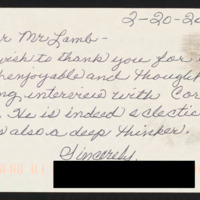 2-20-20
r Mr Lamb-
wish to thank you for
enjoyable and though
ng interview with Cor
. He is indeed eclectic
s also a deep thinker.
Sincerely,